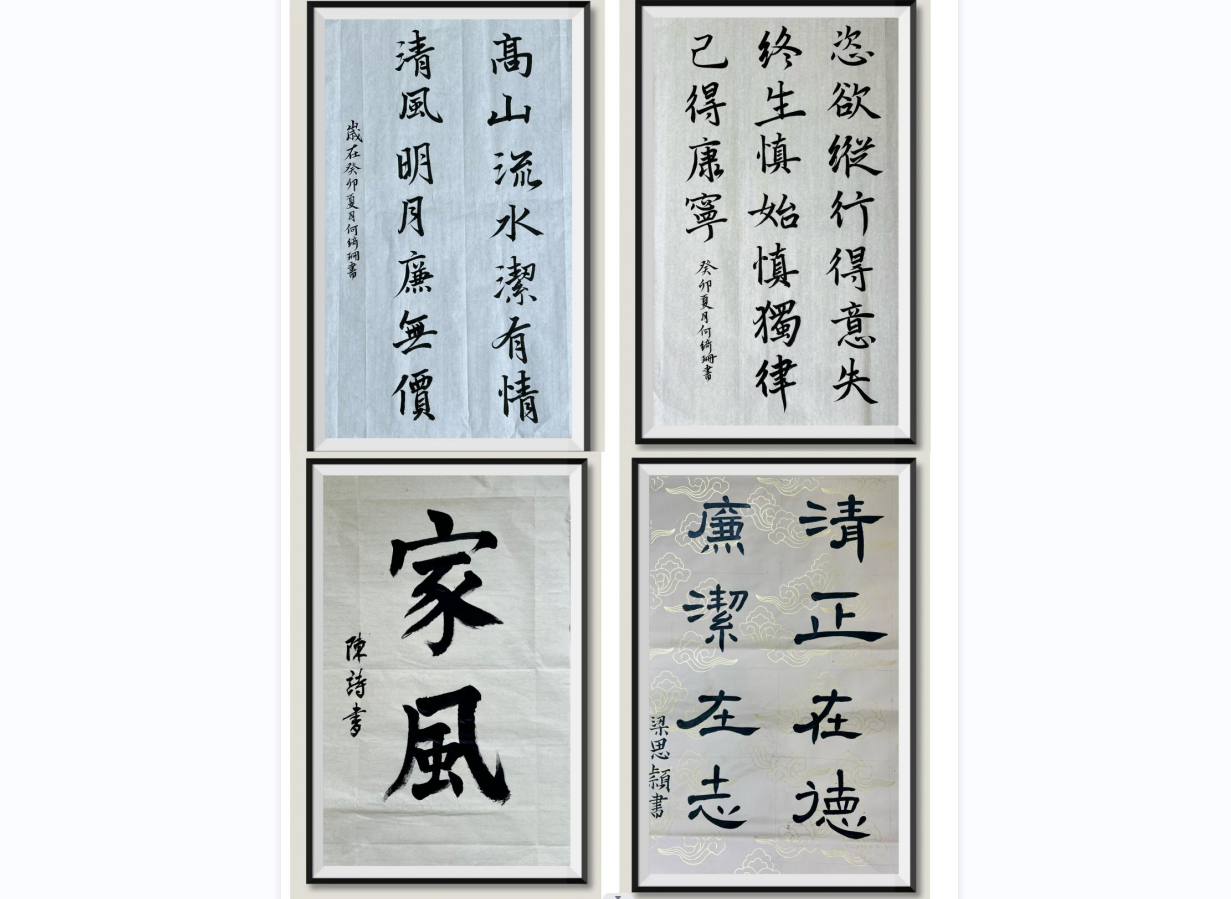 高山流水潔有情
清風明月廉無價
歲在癸卯夏月何綺珊書
恣欲縱行得意失
終生慎始慎獨律
己得康寧
癸卯夏月何綺珊書
家風
陳詩書
清正在德
廉潔在志
梁思穎書